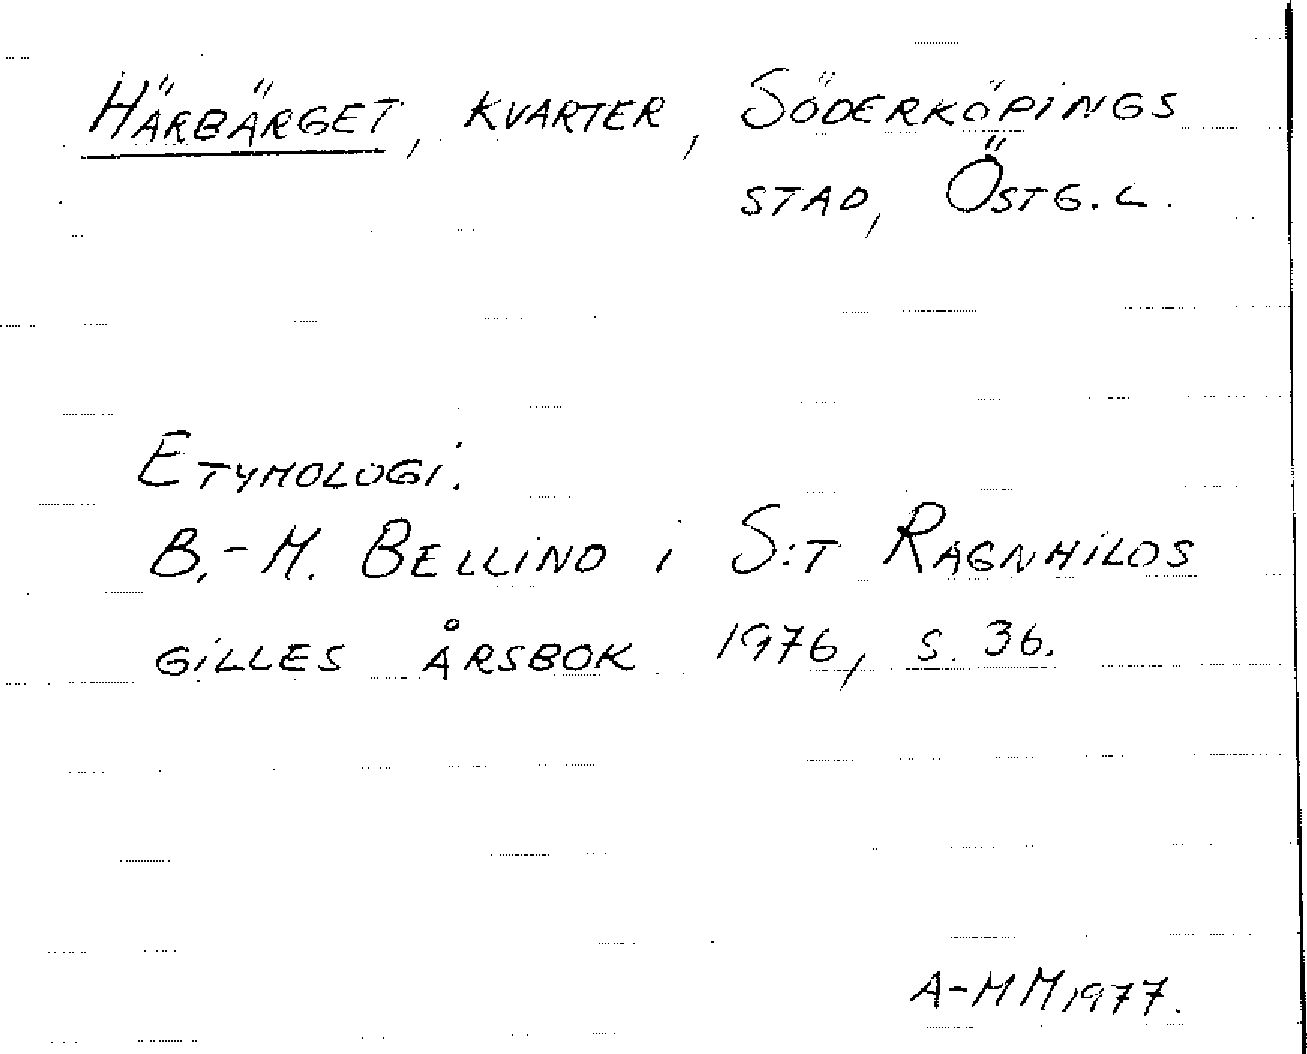 HÄRBÄRGET, KVARTER, SÖDERKÖPINGS
STAD, ÖSTG.L.
ETYMOLOGI.
B.-M. BELLIND i S:T RAGNHILDS
GILLES ÅRSBOK 1976, S. 36.
A-MM 1977.